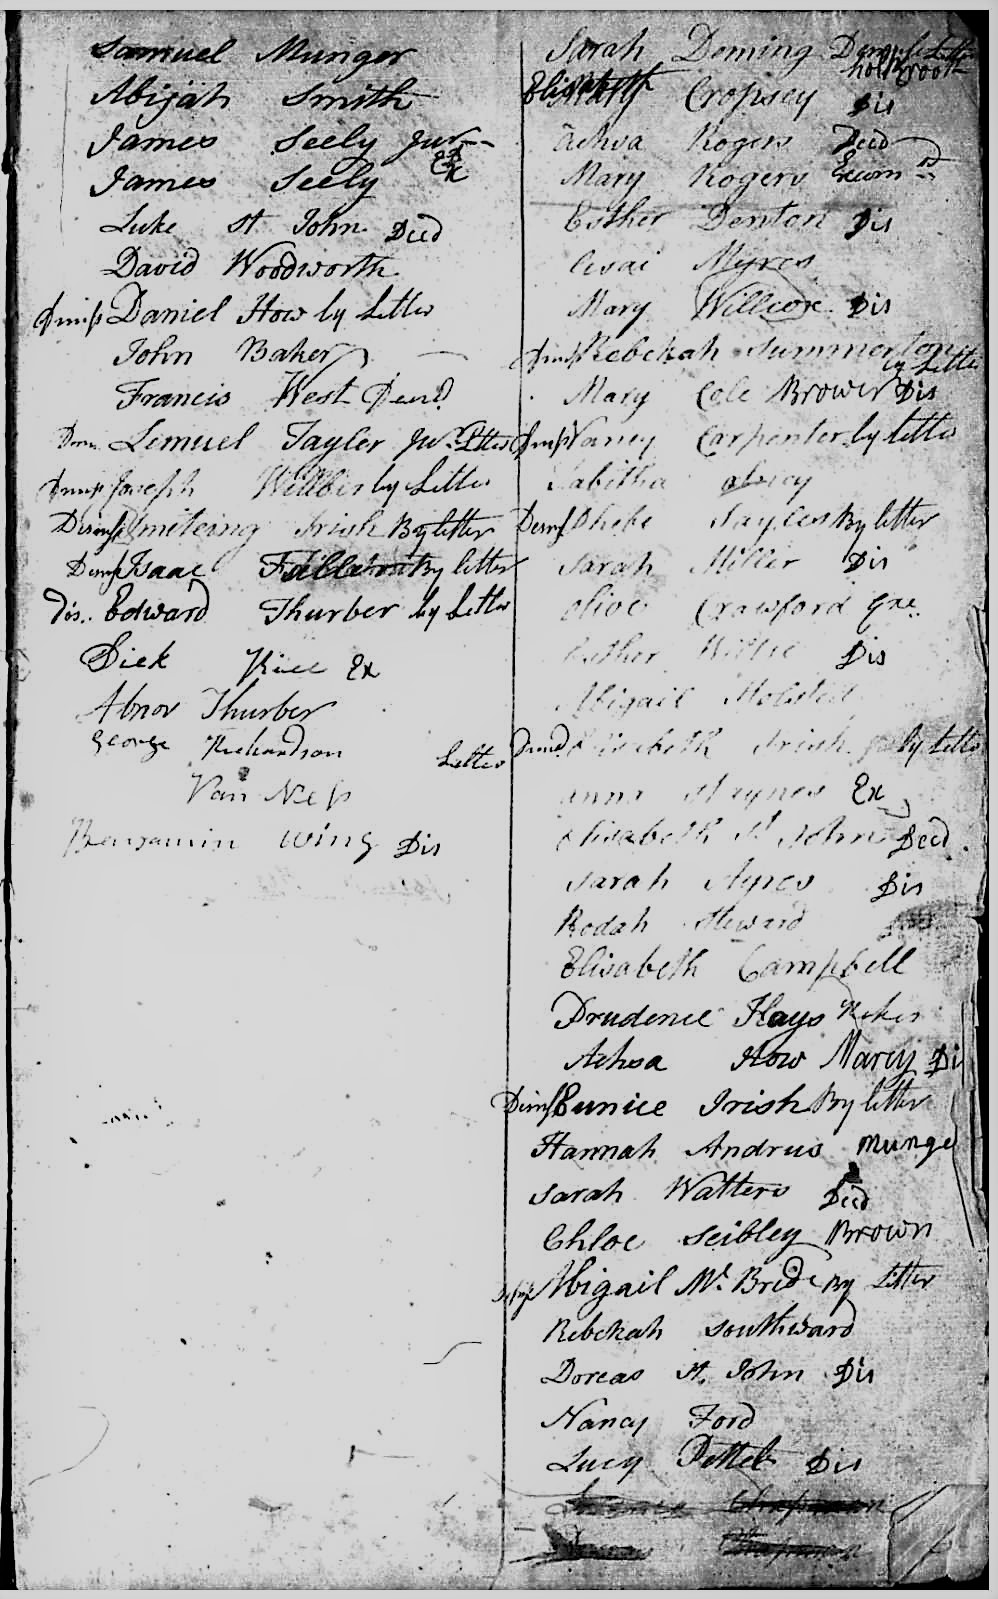 Samuel Munger
Abijah Smith
James Seely Jur
James Seely Ex
Luke St John Decd
David Woodworth
Dimiss Daniel How by Letter
John Baker
Francis West Decd
Dism Lemuel Tayler Jur Letter
Dimiss Joseph Willber by Letter
Dismiss Smiteing Irish By letter
Dismss Isaac By letter
Dis. Edward Thurber by Letter
Dick Ex
Abnor Thurber
George Richardson
Letter
Van Ness
Benjamin Wing Dis
Sarah Deming Letter
holbrook
Elisabeth Cropsey Dis
Achsa Rogers Decd
Mary Rogers Excom
Esther Denton Dis
Myres
Mary Willcox Dis
Dimiss Rebekah Summerton
by Letter
Mary Cole Brower Dis
Dimiss Nancy Carpenter by letter
Tabitha
Dismss Phebe Tayler By letter
Sarah Miller Dis
Olive Crawford Exc.
Esther Willse Dis
Abigail
Dimd Elisabeth Irish by Letter
anna Haynes Ex
Elisabeth St John Decd
Sarah Ayres Dis
Rodah Steward
Elisabeth Campbell
Prudence Hays
Achsa How Marcy Dis
Dimss Eunice Irish By letter
Hannah Andrus Munger
Sarah Watters Decd
Chloe Seibley Brown
Abigail Mc Bride By Letter
Rebekah Southward
Dorcas St. John Dis
Nancy Ford
Lucy Pettet Dis
Chapman
Chapman